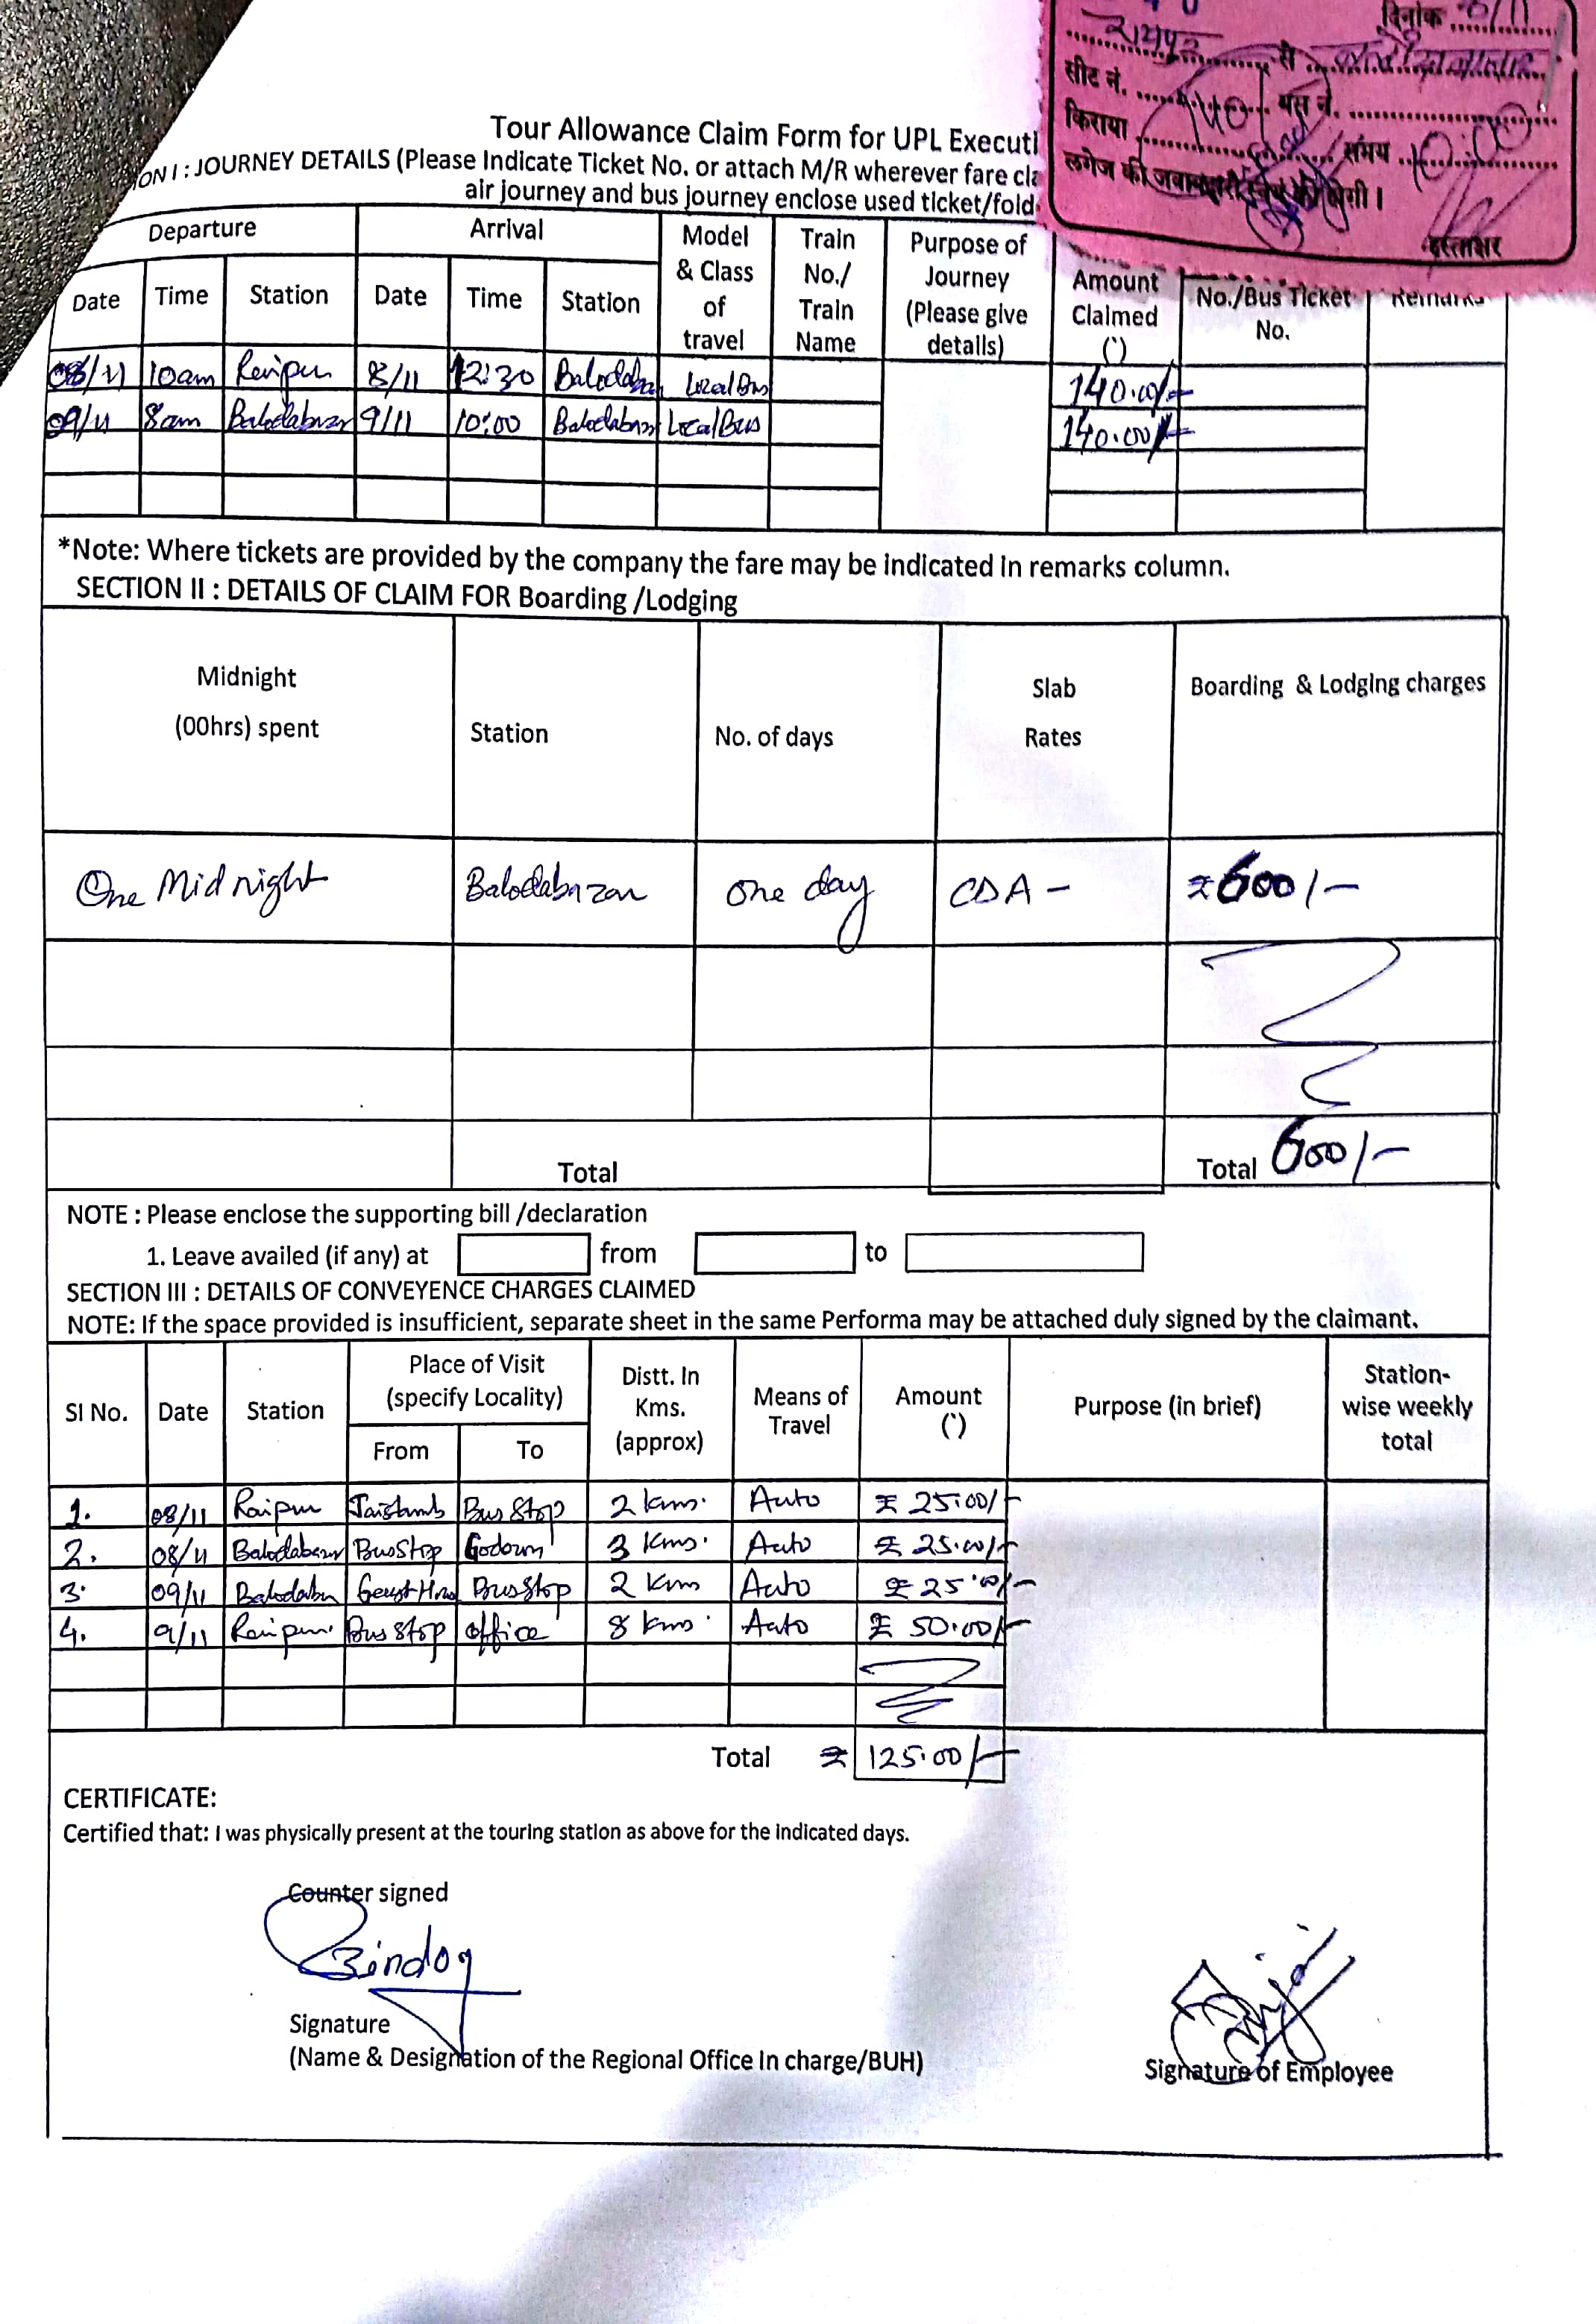 दिनांक 8/11
रायपुर से
सीट नं. बस नं.
किराया 140/- समय 10:00
लगेज की जवाबदारी स्वयं की होगी।
हस्ताक्षर
Tour Allowance Claim Form for UPL Executi
ON I : JOURNEY DETAILS (Please Indicate Ticket No. or attach M/R wherever fare cla
air journey and bus journey enclose used ticket/fold
Departure Arrival Model & Class of travel Train No./ Train Name Purpose of Journey (Please give details) Amount Claimed (`) No./Bus Ticket No. Remarks
Date Time Station Date Time Station
08/11 10am Raipur 8/11 12:30 Balodabazar Local Bus 140.00/-
09/11 8am Balodabazar 9/11 10:00 Balodabazar Local Bus 140.00/-
*Note: Where tickets are provided by the company the fare may be indicated in remarks column.
SECTION II : DETAILS OF CLAIM FOR Boarding /Lodging
Midnight (00hrs) spent Station No. of days Slab Rates Boarding & Lodging charges
One Midnight Balodabazar One day CDA - ₹600/-
Total Total 600/-
NOTE : Please enclose the supporting bill /declaration
1. Leave availed (if any) at from to
SECTION III : DETAILS OF CONVEYENCE CHARGES CLAIMED
NOTE: If the space provided is insufficient, separate sheet in the same Performa may be attached duly signed by the claimant.
Sl No. Date Station Place of Visit (specify Locality) Distt. In Kms. (approx) Means of Travel Amount (`) Purpose (in brief) Station-wise weekly total
From To
1. 08/11 Raipur Bus Stop 2 kms. Auto ₹ 25.00/-
2. 08/11 Balodabazar Bus Stop Godown 3 Kms. Auto ₹ 25.00/-
3. 09/11 Bus Stop 2 Km Auto ₹ 25.00/-
4. 9/11 Raipur Bus Stop office 8 Kms. Auto ₹ 50.00/-
Total ₹ 125.00/-
CERTIFICATE:
Certified that: I was physically present at the touring station as above for the indicated days.
Counter signed
Signature
(Name & Designation of the Regional Office In charge/BUH)
Signature of Employee